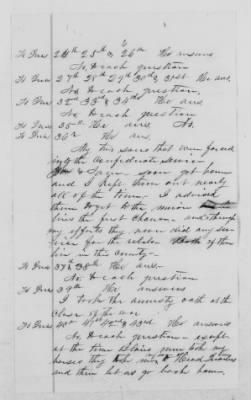 6
To Ques 24th 25th & 26th He answers
No. to each question
To Ques 27th 28th 29th 30th & 31st He ans.
No. to each question,
To Ques 32d 33d & 34th He ans.
No to each question
To Ques 35th He ans No.
To Ques 36th He ans
My two sons that were forced
into the Confederate Service
soon got home
and I kept them out nearly
all of the time. I advised
them to get to the union
lines the first chance. and through
my efforts they never did any ser-
vice for the rebels. Both of them
live in this County.
To Ques 37th & 38th He ans-
No. to each question
To Ques 39th He answers
I took the amnesty oath at the
close of the war
To Ques 40th 41st 42d & 43rd He answers
No. to each question - except
at the time
horses they took me to Head Quarters
and then let us go back home.